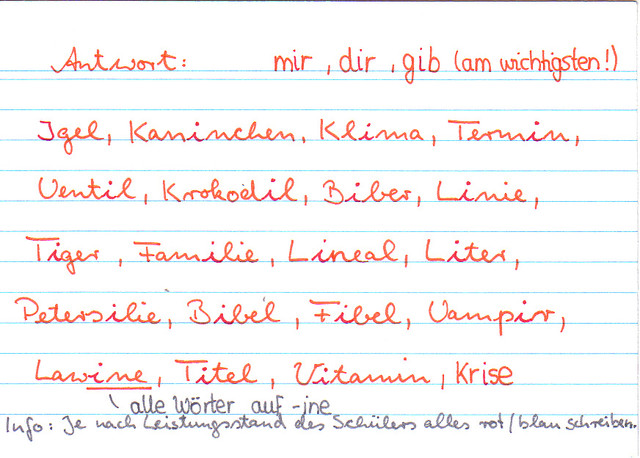 Antwort: mir, dir, gib (am wichtigsten!)
Igel, Kaninchen, Klima, Termin,
Ventil, Krokodil, Biber, Linie,
Tiger, Familie, Lineal, Liter,
Petersilie, Bibel, Fibel, Vampir,
Lawine, Titel, Vitamin, Krise
\ alle Wörter auf -ine
Info: Je nach Leistungsstand des Schülers alles rot/blau schreiben.